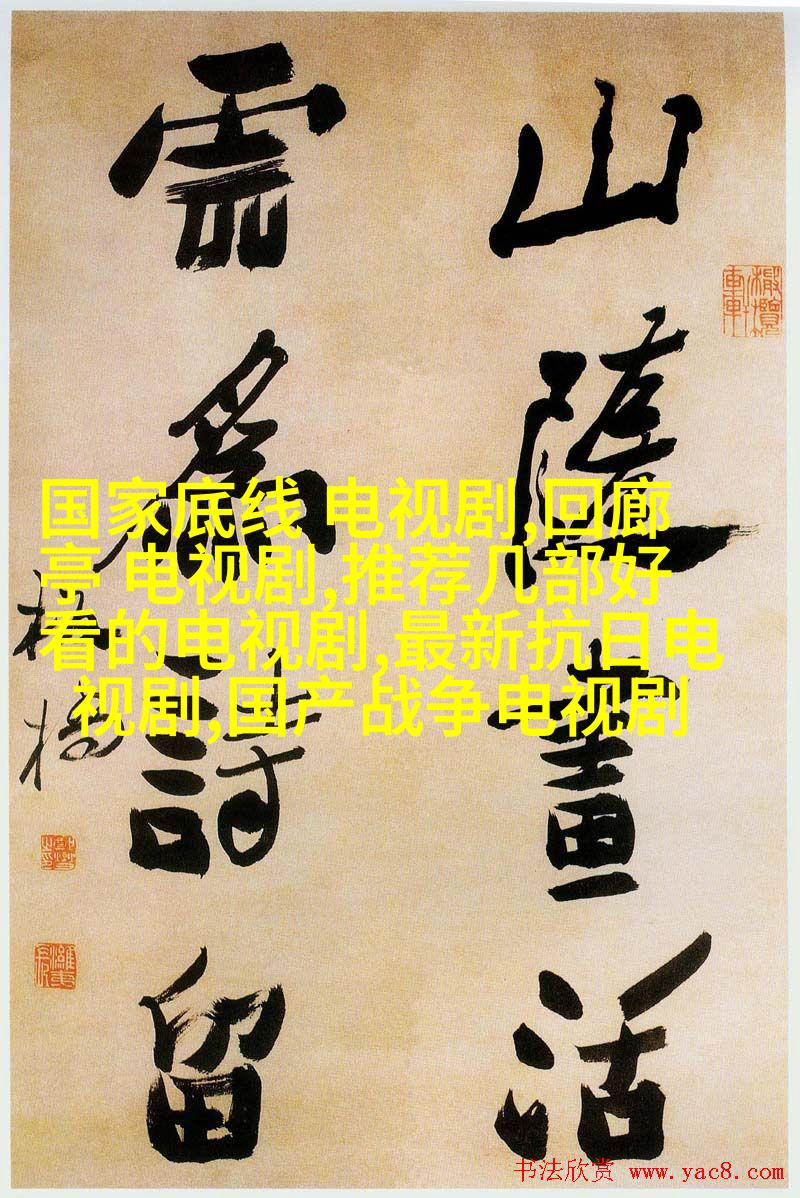 山隨畫活
雲爲詩留
板橋
国家底线 电视剧,回廊
亭 电视剧,推荐几部好
看的电视剧,最新抗日电
视剧,国产战争电视剧
书法欣赏 www.yac8.com